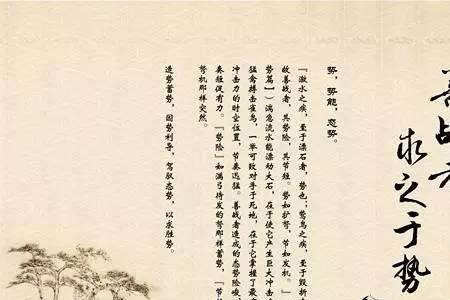 善战者
求之于势
势，势能，态势。
「激水之疾，至于漂石者，势也；鸷鸟之疾，至于毁折
故善战者，其势险，其节短。势如扩弩，节如发机。』
势篇】）湍急流水能漂动大石，在于使它产生巨大冲击
猛禽搏击雀鸟，一举可致对手于死地，在于它掌握了最
冲击力的时空位置，节奏迅猛。善战者造成的态势险峻
奏短促有力。『势险』如满弓待发的弩那样蓄势，『节
弩机那样突然。
造势蓄势，因势利导，驾驭态势，以求胜势。